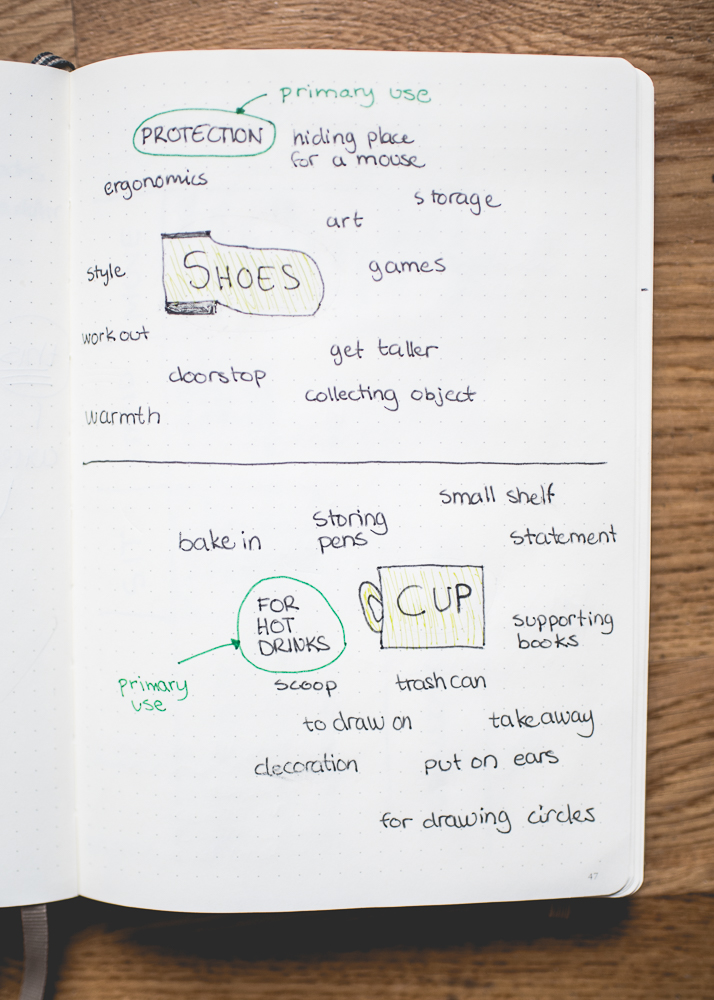 primary use
PROTECTION
hiding place
for a mouse
ergonomics
storage
art
SHOES
style
games
workout
get taller
doorstop
collecting object
warmth
small shelf
storing
pens
bake in
statement
CUP
FOR
HOT
DRINKS
supporting
books
primary
use
scoop
trashcan
to draw on
takeaway
decoration
put on ears
for drawing circles
47